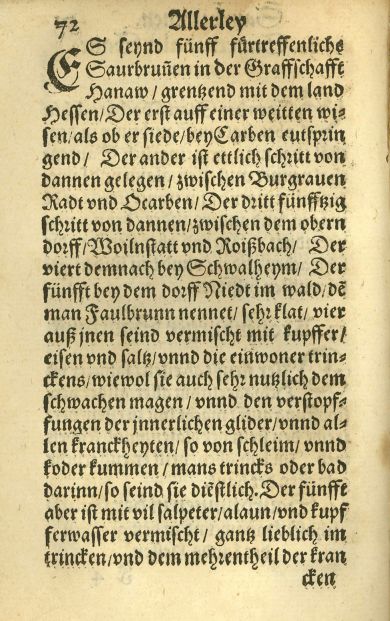 72 Allerley
ES seynd fünff fürtreffenliche
Saurbruñen in der Graffschafft
Hanaw / grentzend mit dem land
Hessen / Der erst auff einer weitten wi⸗
sen / als ob er siede / bey Carben eutsprin
gend / Der ander ist ettlich schritt von
dannen gelegen / zwischen Burgrauen
Radt vnd Ocarben / Der dritt fünfftzig
schritt von dannen / zwischen dem obern
dorff / Woilnstatt vnd Roißbach / Der
viert demnach bey Schwalheym / Der
fünfft bey dem dorff Niedt im wald / dē
man Faulbrunn nennet / sehr klat / vier
auß jnen seind vermischt mit kupffer /
eisen vnd saltz / vnnd die einwoner trin⸗
ckens / wiewol sie auch sehr nutzlich dem
schwachen magen / vnnd den verstopf⸗
fungen der jnnerlichen glider / vnnd al⸗
len kranckheyten / so von schleim / vnnd
koder kummen / mans trincks oder bad
darinn / so seind sie diēstlich. Der fünfft
aber ist mit vil salpeter / alaun / vnd kupf
ferwasser vermischt / gantz lieblich im
trincken / vnd dem mehrentheil der kran
cken